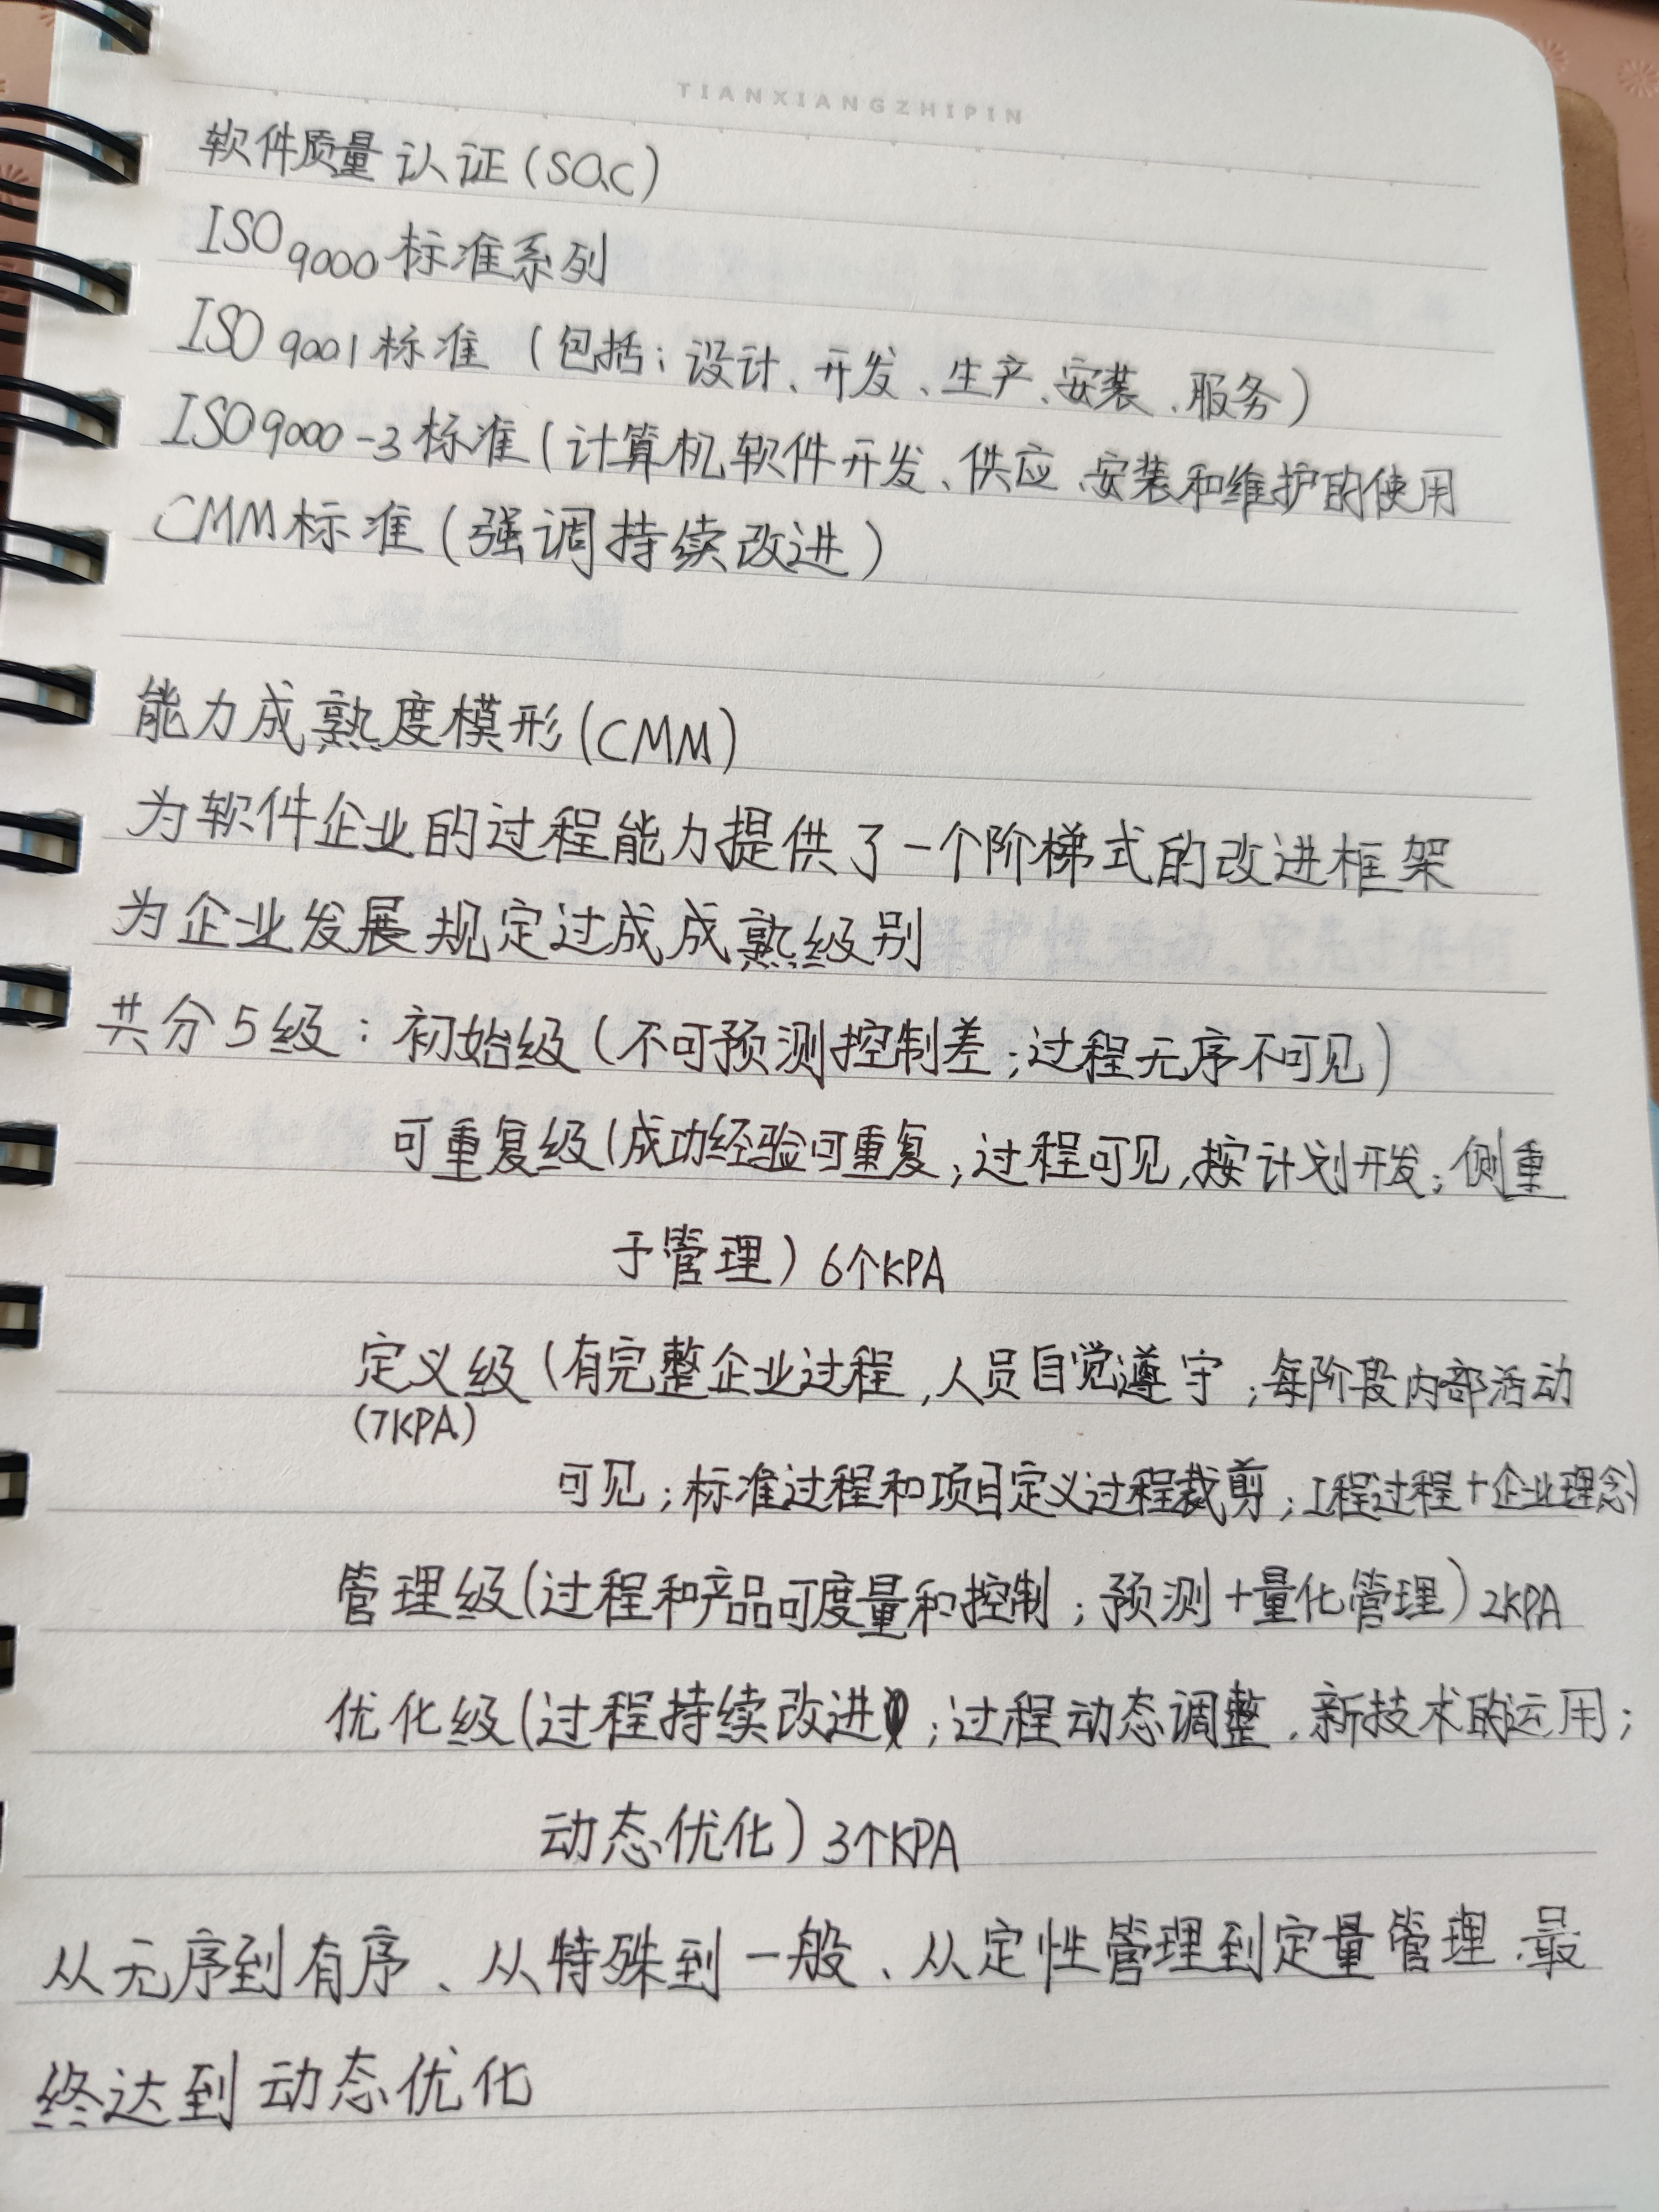 TIANXIANGZHIPIN
软件质量认证(SQC)
ISO9000标准系列
ISO 9001标准（包括；设计、开发、生产、安装、服务）
ISO9000-3标准(计算机软件开发、供应、安装和维护的使用
CMM标准(强调持续改进)
能力成熟度模形(CMM)
为软件企业的过程能力提供了一个阶梯式的改进框架
为企业发展规定过成成熟级别
共分5级：初始级(不可预测控制差；过程无序不可见)
可重复级(成功经验可重复；过程可见,按计划开发；侧重
于管理) 6个KPA
定义级(有完整企业过程,人员自觉遵守；每阶段内部活动
(7KPA)
可见；标准过程和项目定义过程裁剪；工程过程+企业理念)
管理级(过程和产品可度量和控制；预测+量化管理)2KPA
优化级(过程持续改进；过程动态调整、新技术的运用；
动态优化)3个KPA
从无序到有序、从特殊到一般、从定性管理到定量管理、最
终达到动态优化